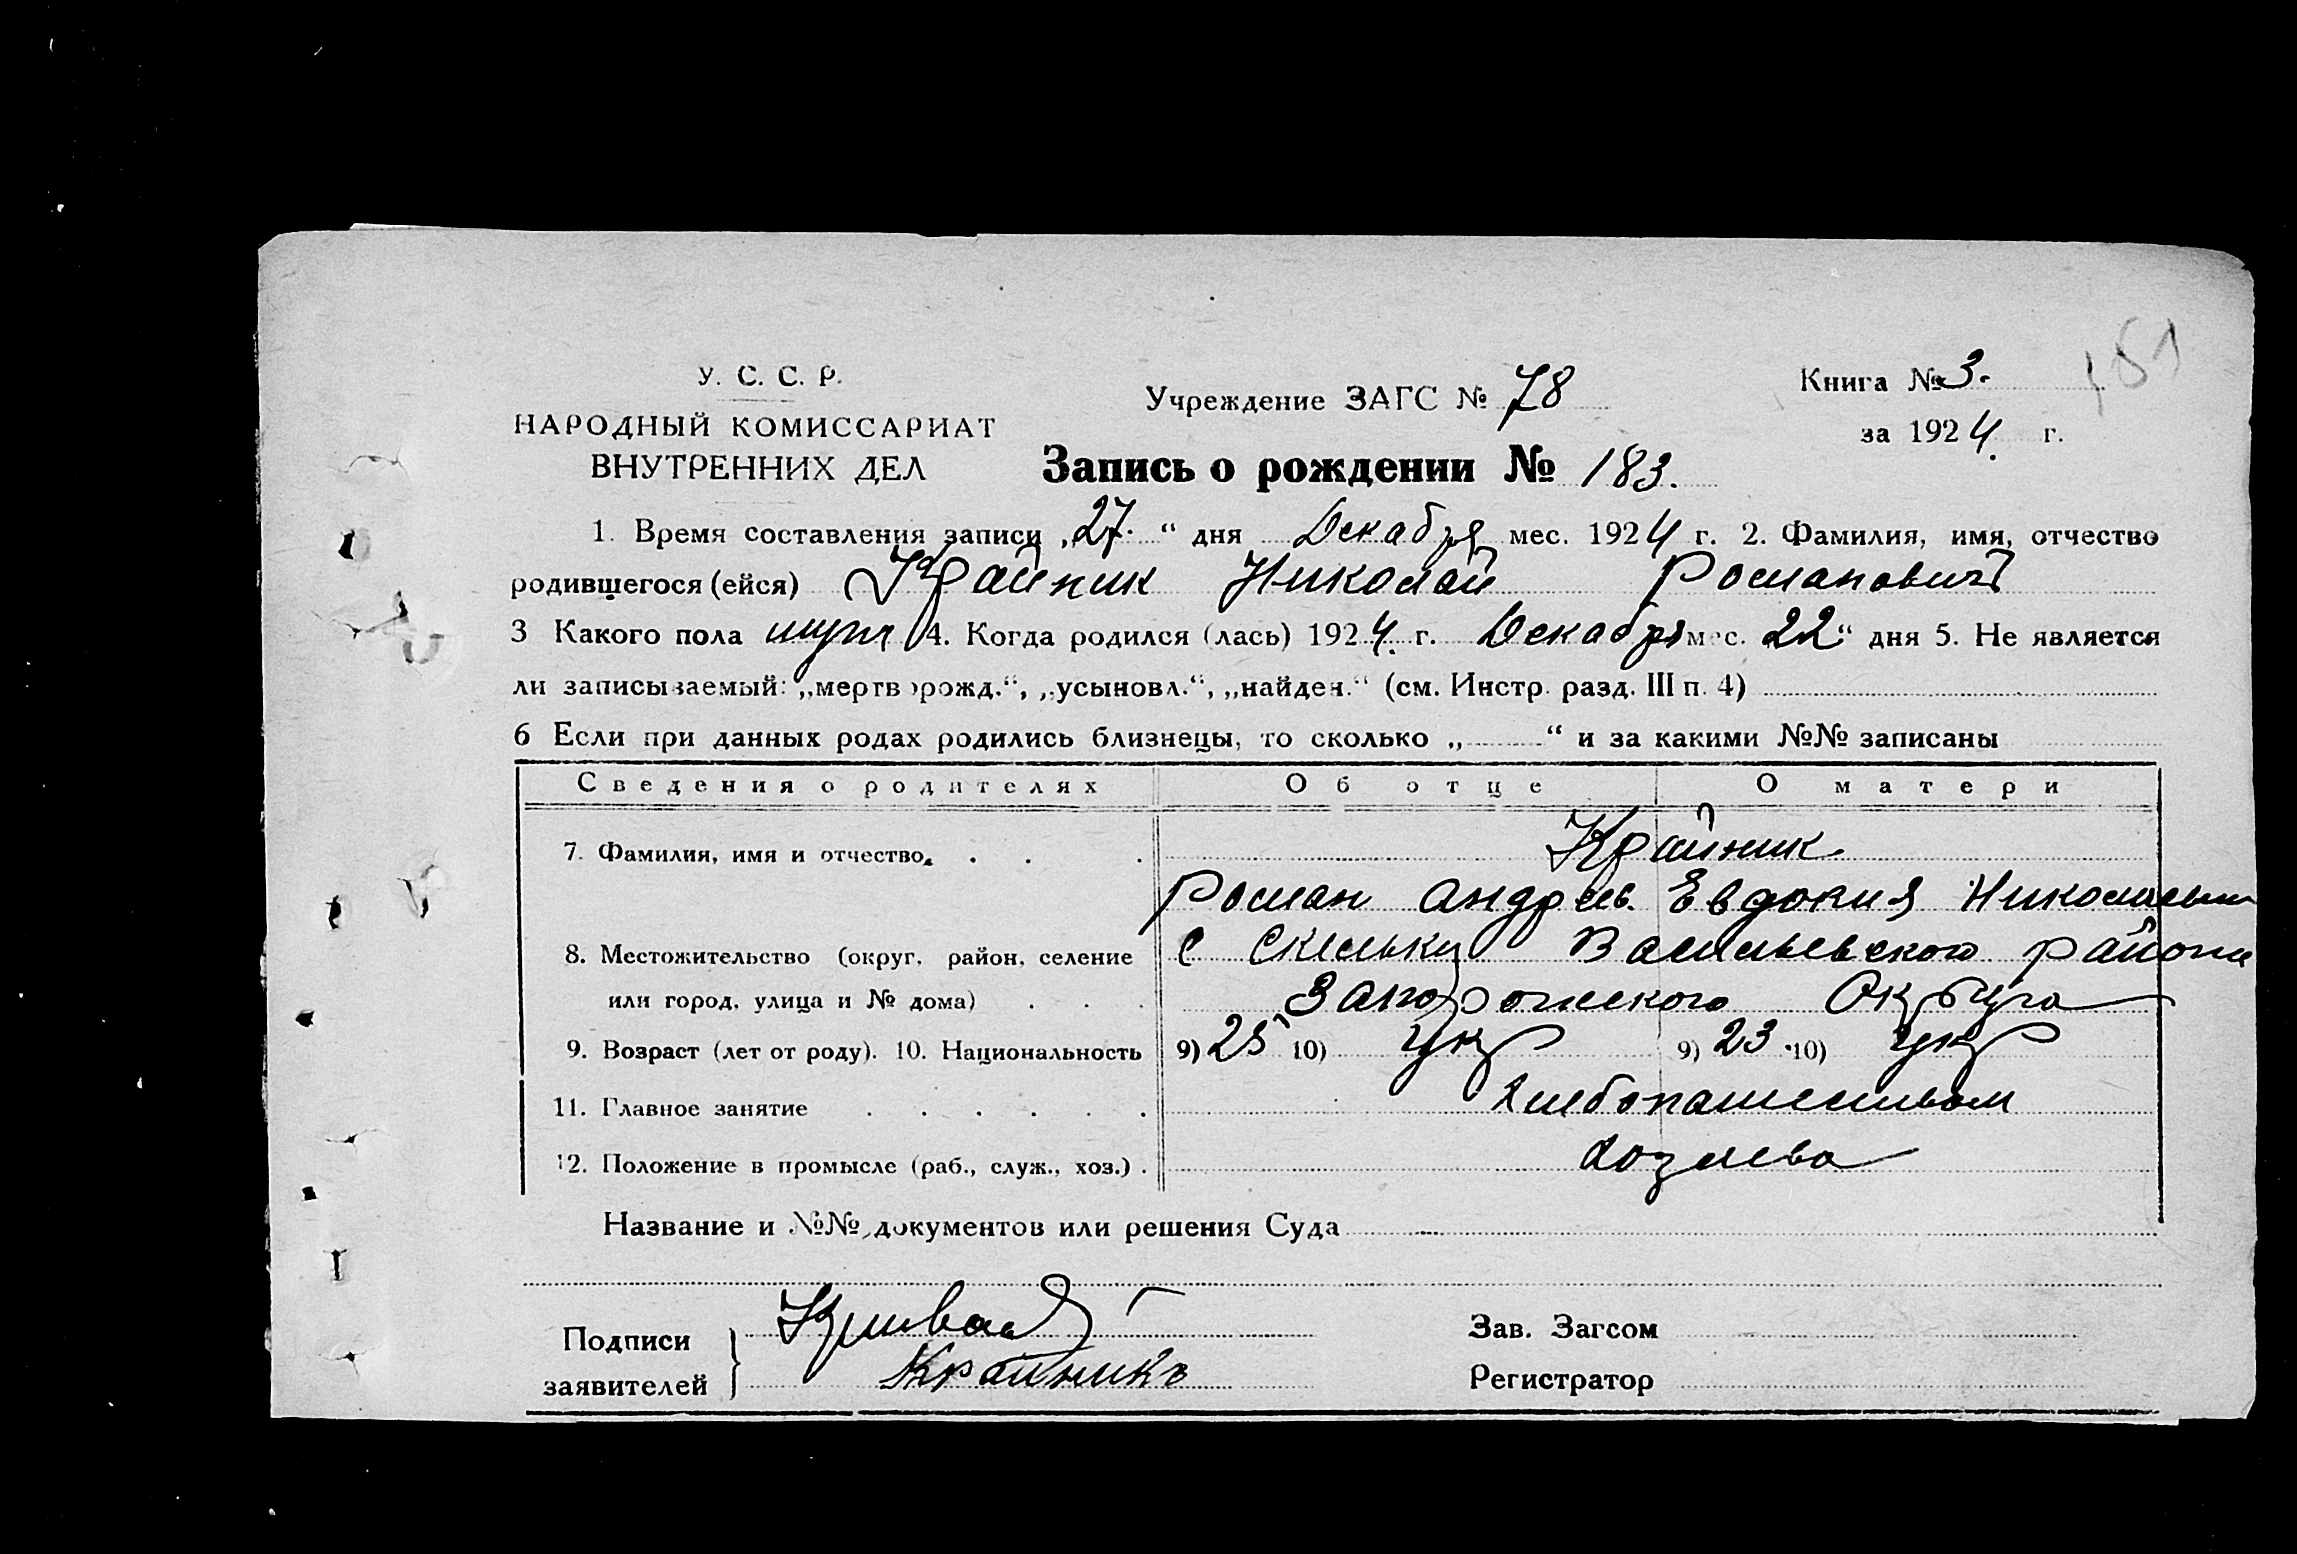 151
У. С. С. Р.
НАРОДНЫЙ КОМИССАРИАТ
ВНУТРЕННИХ ДЕЛ
Учреждение ЗАГС № 78
Книга № 3.
за 1924 г.
Запись о рождении № 183.
1. Время составления записи „27.“ дня Декабря мес. 1924 г. 2. Фамилия, имя, отчество
родившегося (ейся) Крайник Николай Романович
3 Какого пола муж 4. Когда родился (лась) 1924 г. Декабря мес. 22“ дня 5. Не является
ли записываемый: „мертворожд.“, „усыновл.“, „найден.“ (см. Инстр. разд. III п. 4)
6 Если при данных родах родились близнецы, то сколько „ “ и за какими №№ записаны
Сведения о родителях Об отце О матери
7. Фамилия, имя и отчество. . . . Крайник
Роман Андреев. Евдокия Николаевн
8. Местожительство (округ, район, селение с Скельки Васильевского района
или город, улица и № дома) . . . Запорожского Округа
9. Возраст (лет от роду). 10. Национальность 9) 25 10) Укр 9) 23 10) Укр
11. Главное занятие . . . . . . Хлебопашеством
12. Положение в промысле (раб., служ., хоз.) . хозяева
Название и №№ документов или решения Суда
Подписи
заявителей
Крайникъ
Зав. Загсом
Регистратор